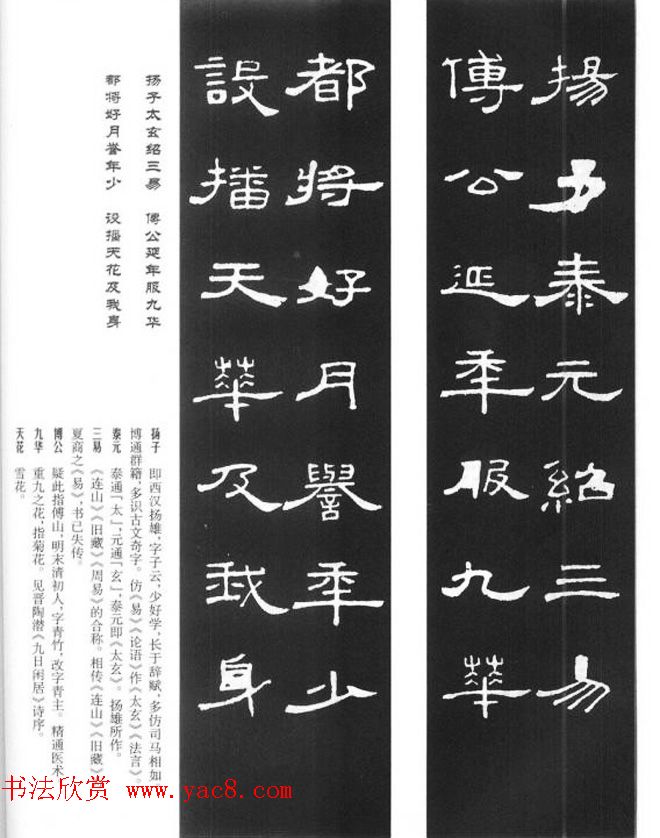 揚子泰元紹三易
傅公延年服九華
都將好月譽年少
設播天華及我身
扬子太玄绍三易　傅公延年服九华
都将好月誉年少　设播天花及我身
扬子　即西汉扬雄，字子云，少好学，长于辞赋，多仿司马相如，
博通群籍，多识古文奇字。仿《易》《论语》作《太玄》《法言》。
泰元　泰通「太」，元通「玄」，泰元即《太玄》。扬雄所作。
三易　《连山》《旧藏》《周易》的合称。相传《连山》《旧藏》
夏商之《易》，书已失传。
博公　疑此指傅山，明末清初人，字青竹，改字青主。精通医术
九华　重九之花，指菊花。见晋陶潜《九日闲居》诗序。
天花　雪花。
书法欣赏 www.yac8.com